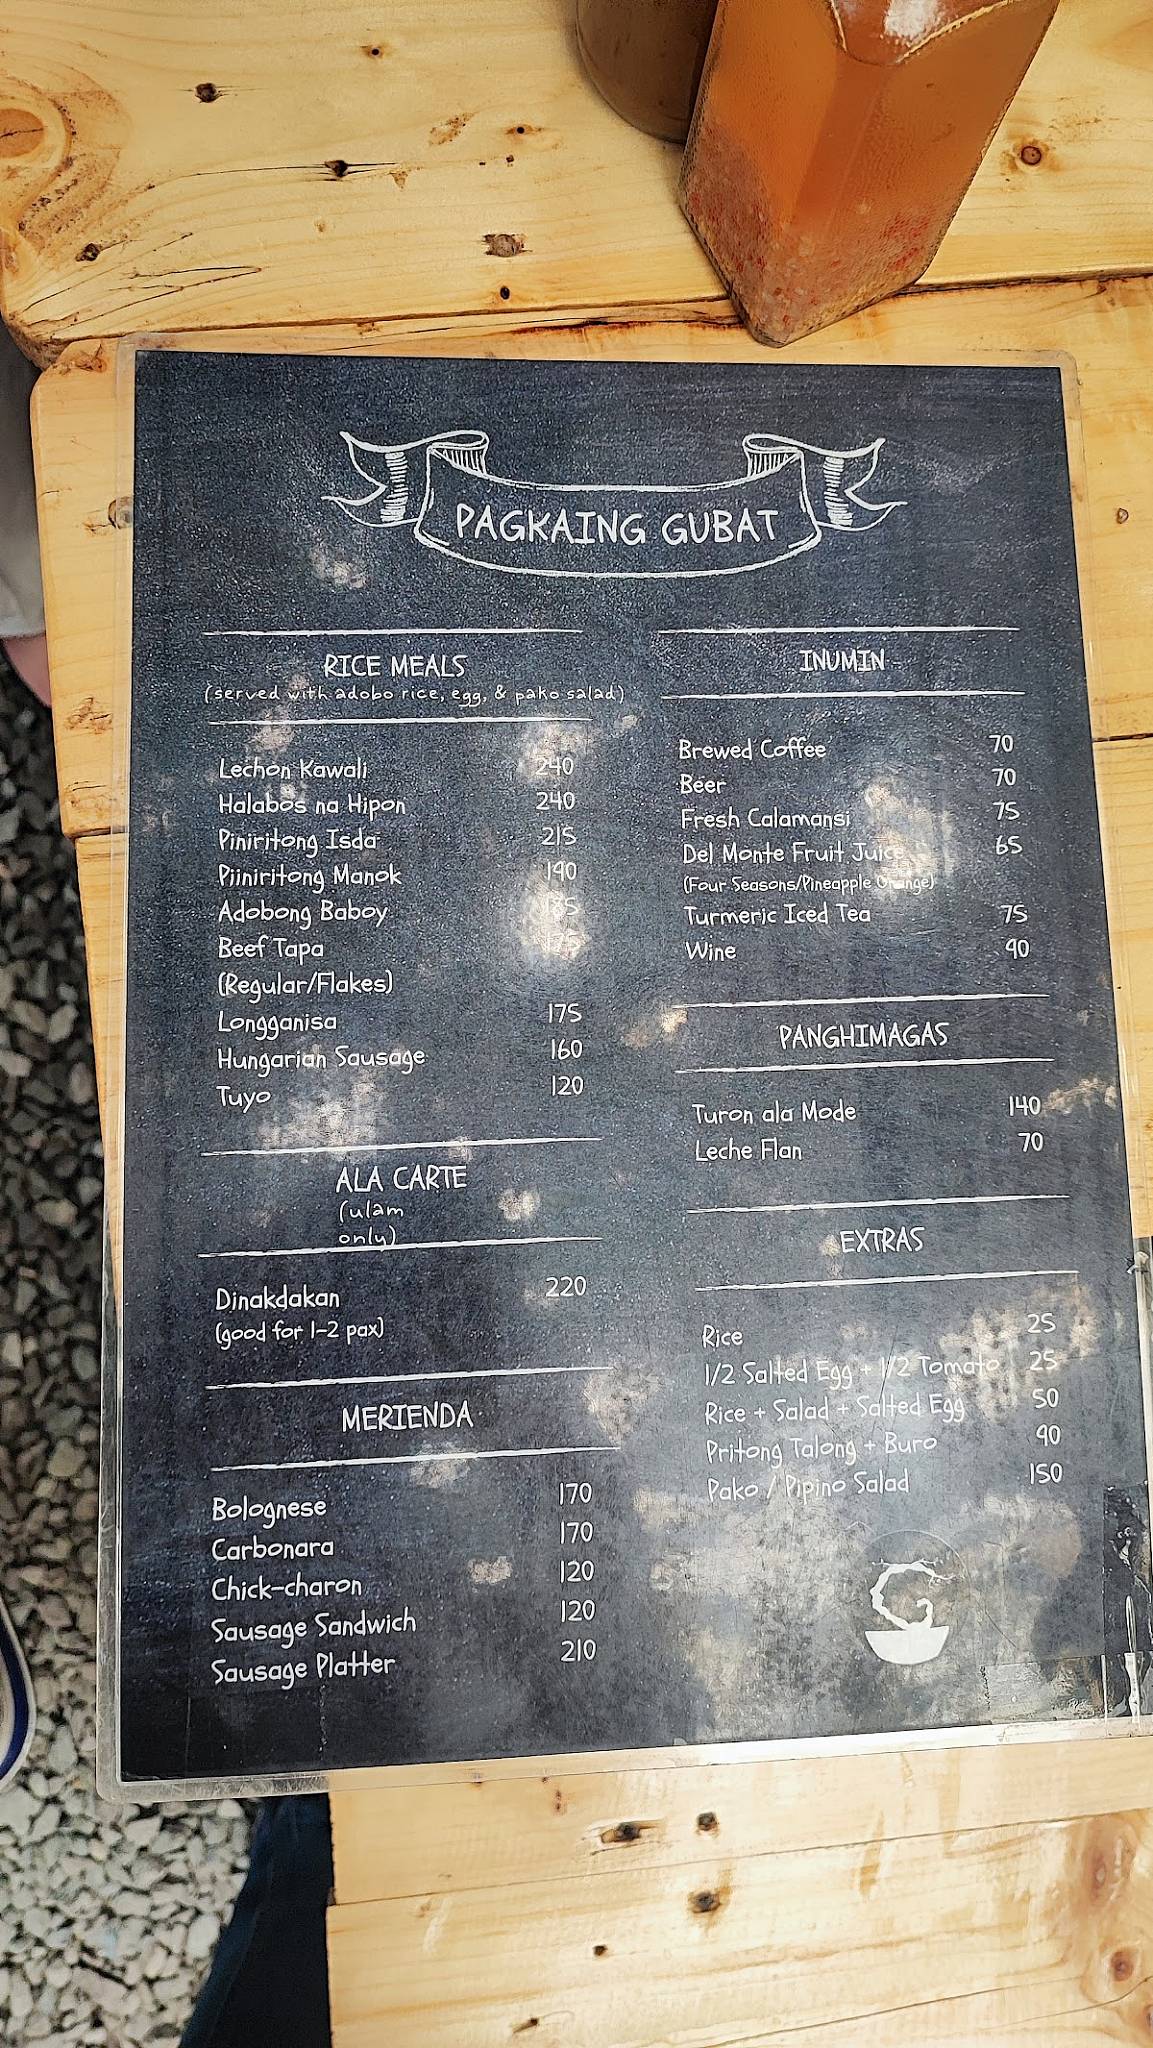 PAGKAING GUBAT
RICE MEALS
(served with adobo rice, egg, & pako salad)
Lechon Kawali 240
Halabos na Hipon 240
Piniritong Isda 215
Piiniritong Manok 190
Adobong Baboy
Beef Tapa 175
(Regular/Flakes)
Longganisa 175
Hungarian Sausage 160
Tuyo 120
ALA CARTE
(ulam
only)
Dinakdakan 220
(good for 1-2 pax)
MERIENDA
Bolognese 170
Carbonara 170
Chick-charon 120
Sausage Sandwich 120
Sausage Platter 210
INUMIN
Brewed Coffee 70
Beer 70
Fresh Calamansi 75
Del Monte Fruit Juice 65
(Four Seasons/Pineapple Orange)
Turmeric Iced Tea 75
Wine 90
PANGHIMAGAS
Turon ala Mode 140
Leche Flan 70
EXTRAS
Rice 25
1/2 Salted Egg + 1/2 Tomato 25
Rice + Salad + Salted Egg 50
Pritong Talong + Buro 90
Pako / Pipino Salad 150